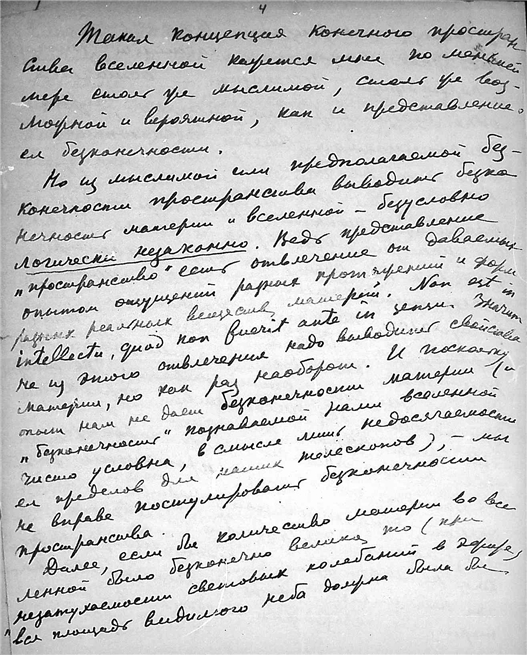 4
Такая концепция конечного простран
ства вселенной кажется мне по меньшей
мере столь же мыслимой, столь же воз-
можной и вероятной, как и представление
ея безконечности.
Но из мыслимой или предполагаемой без-
конечности пространства выводить безко
нечность материи и вселенной – безусловно
логически незаконно. Ведь представление
„пространство" есть отвлечение от даваемых
опытом ощущений разных протяжений и форм
разных реальных веществ, материй. Non est in
intellectu, quod non fuerit ante in sensu. Значит
не из этого отвлечения надо выводить свойства
материи, но как раз наоборот. И поскольку (и
опыт нам не дает безконечности материи
„безконечность" познаваемой нами вселенной
чисто условна, в смысле лишь недосягаемости
ея пределов для наших телескопов), – мы
не вправе постулировать безконечности
пространства.
Далее, если бы количество материи во все
ленной было безконечно велико, то (при
незатухаемости световых колебаний в эфире,
вся площадь видимого неба должна была бы